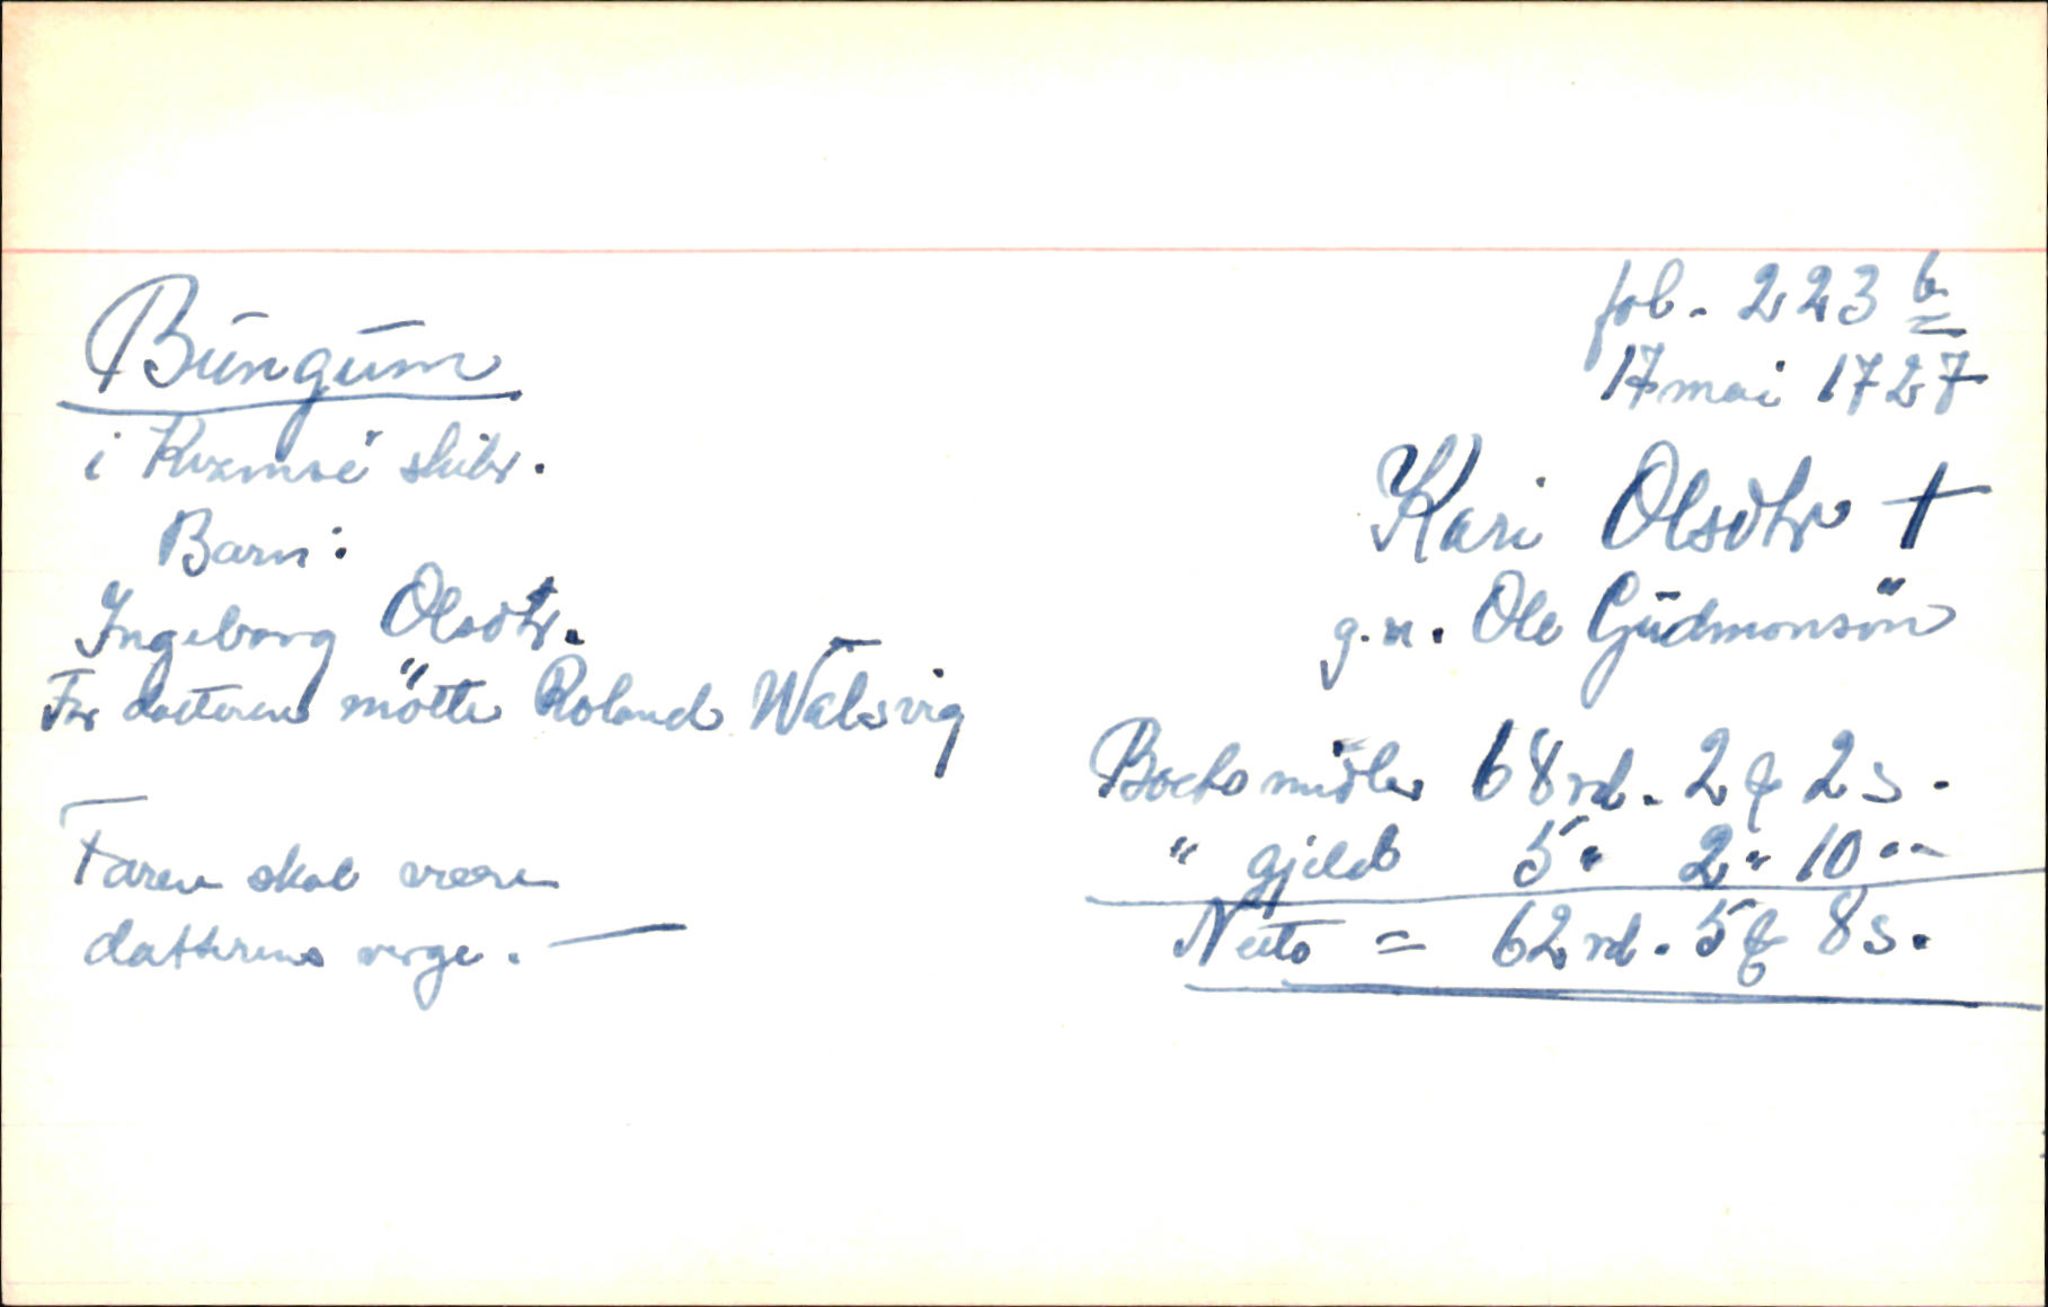 fol. 223 b
17 mai 1727
Bungum
i Kvamsö skibr.
Kari Olsdtr †
Barn:
Ingeborg Olsdtr.
g.m. Ole Gudmonsön
For datteren mötte Roland Walsvig
Boets midler 68 rd. 2 ₰ 2 s.
" gjeld 5 " 2 " 10 ""
Faren skal være
datterens verge. —
Netto = 62 rd. 5 ₰ 8 s.